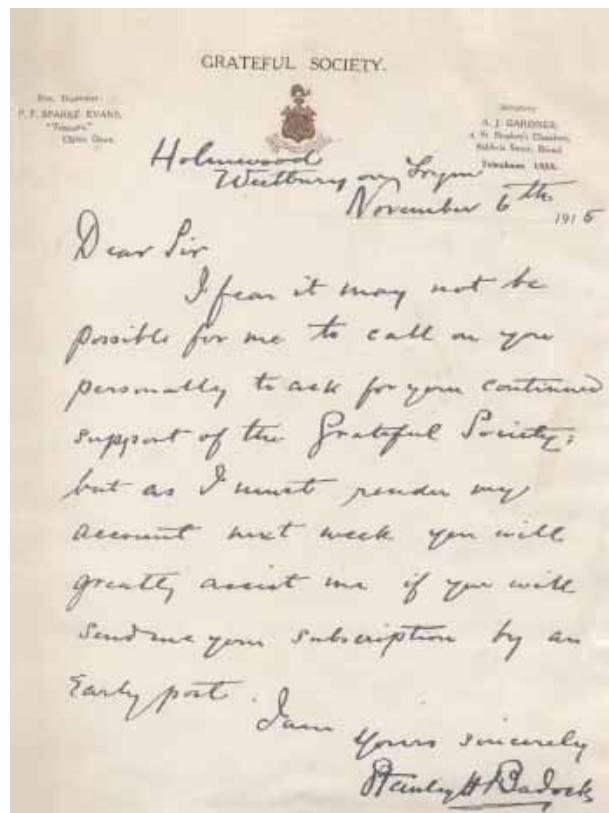 GRATEFUL SOCIETY.
P. F. SPARKE EVANS,
Clifton Down.
A. J. GARDNER,
4, St. Stephen's Chambers,
Baldwin Street, Bristol
Telephone
Holmwood
Westbury on Trym
November 6th 1915
Dear Sir
I fear it may not be
possible for me to call on you
personally to ask for your continued
support of the Grateful Society;
but as I must render my
account next week you will
greatly assist me if you will
send me your subscription by an
early post.
I am
Yours sincerely
Stanley H Badock